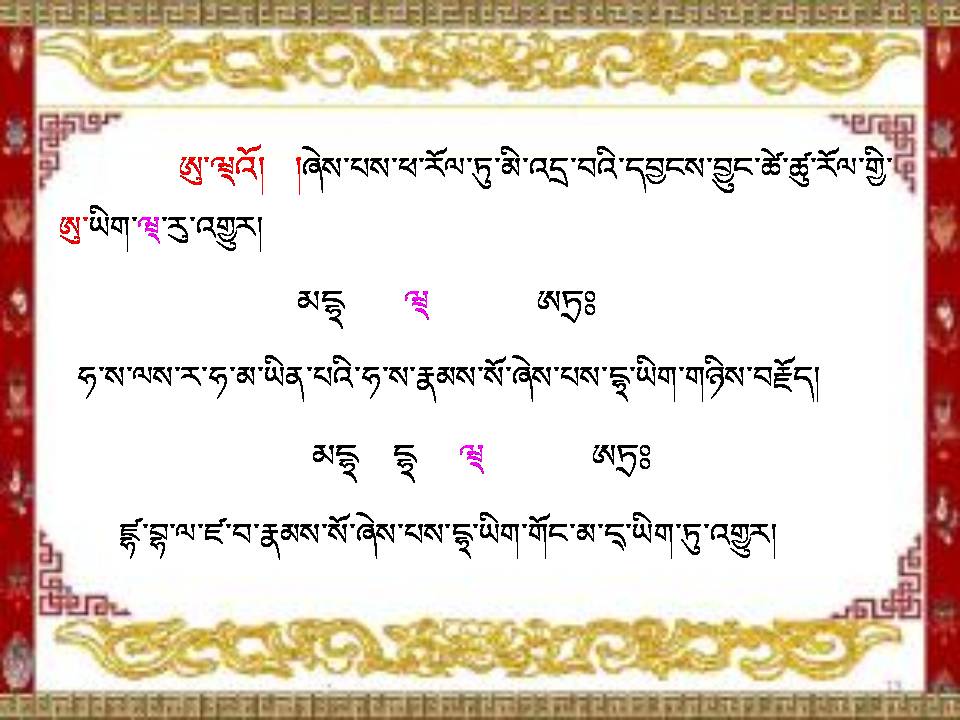 ཨུ་ལྀའོ། །ཞེས་པས་ཕ་རོལ་ཏུ་མི་འདྲ་བའི་དབྱངས་བྱུང་ཚེ་ཚུ་རོལ་གྱི་
ཨུ་ཡིག་ལྀ་རུ་འགྱུར།
མདྡྷྭ ལྀ ཨཏྲཿ
ཧ་ས་ལས་ར་ཧ་མ་ཡིན་པའི་ཧ་ས་རྣམས་སོ་ཞེས་པས་དྷྭ་ཡིག་གཉིས་བརྗོད།
མདྡྷྭ དྡྷྭ ལྀ ཨཏྲཿ
ཛྷ་བྷ་ལ་ཛ་བ་རྣམས་སོ་ཞེས་པས་དྷྭ་ཡིག་གོང་མ་ད་ཡིག་ཏུ་འགྱུར།